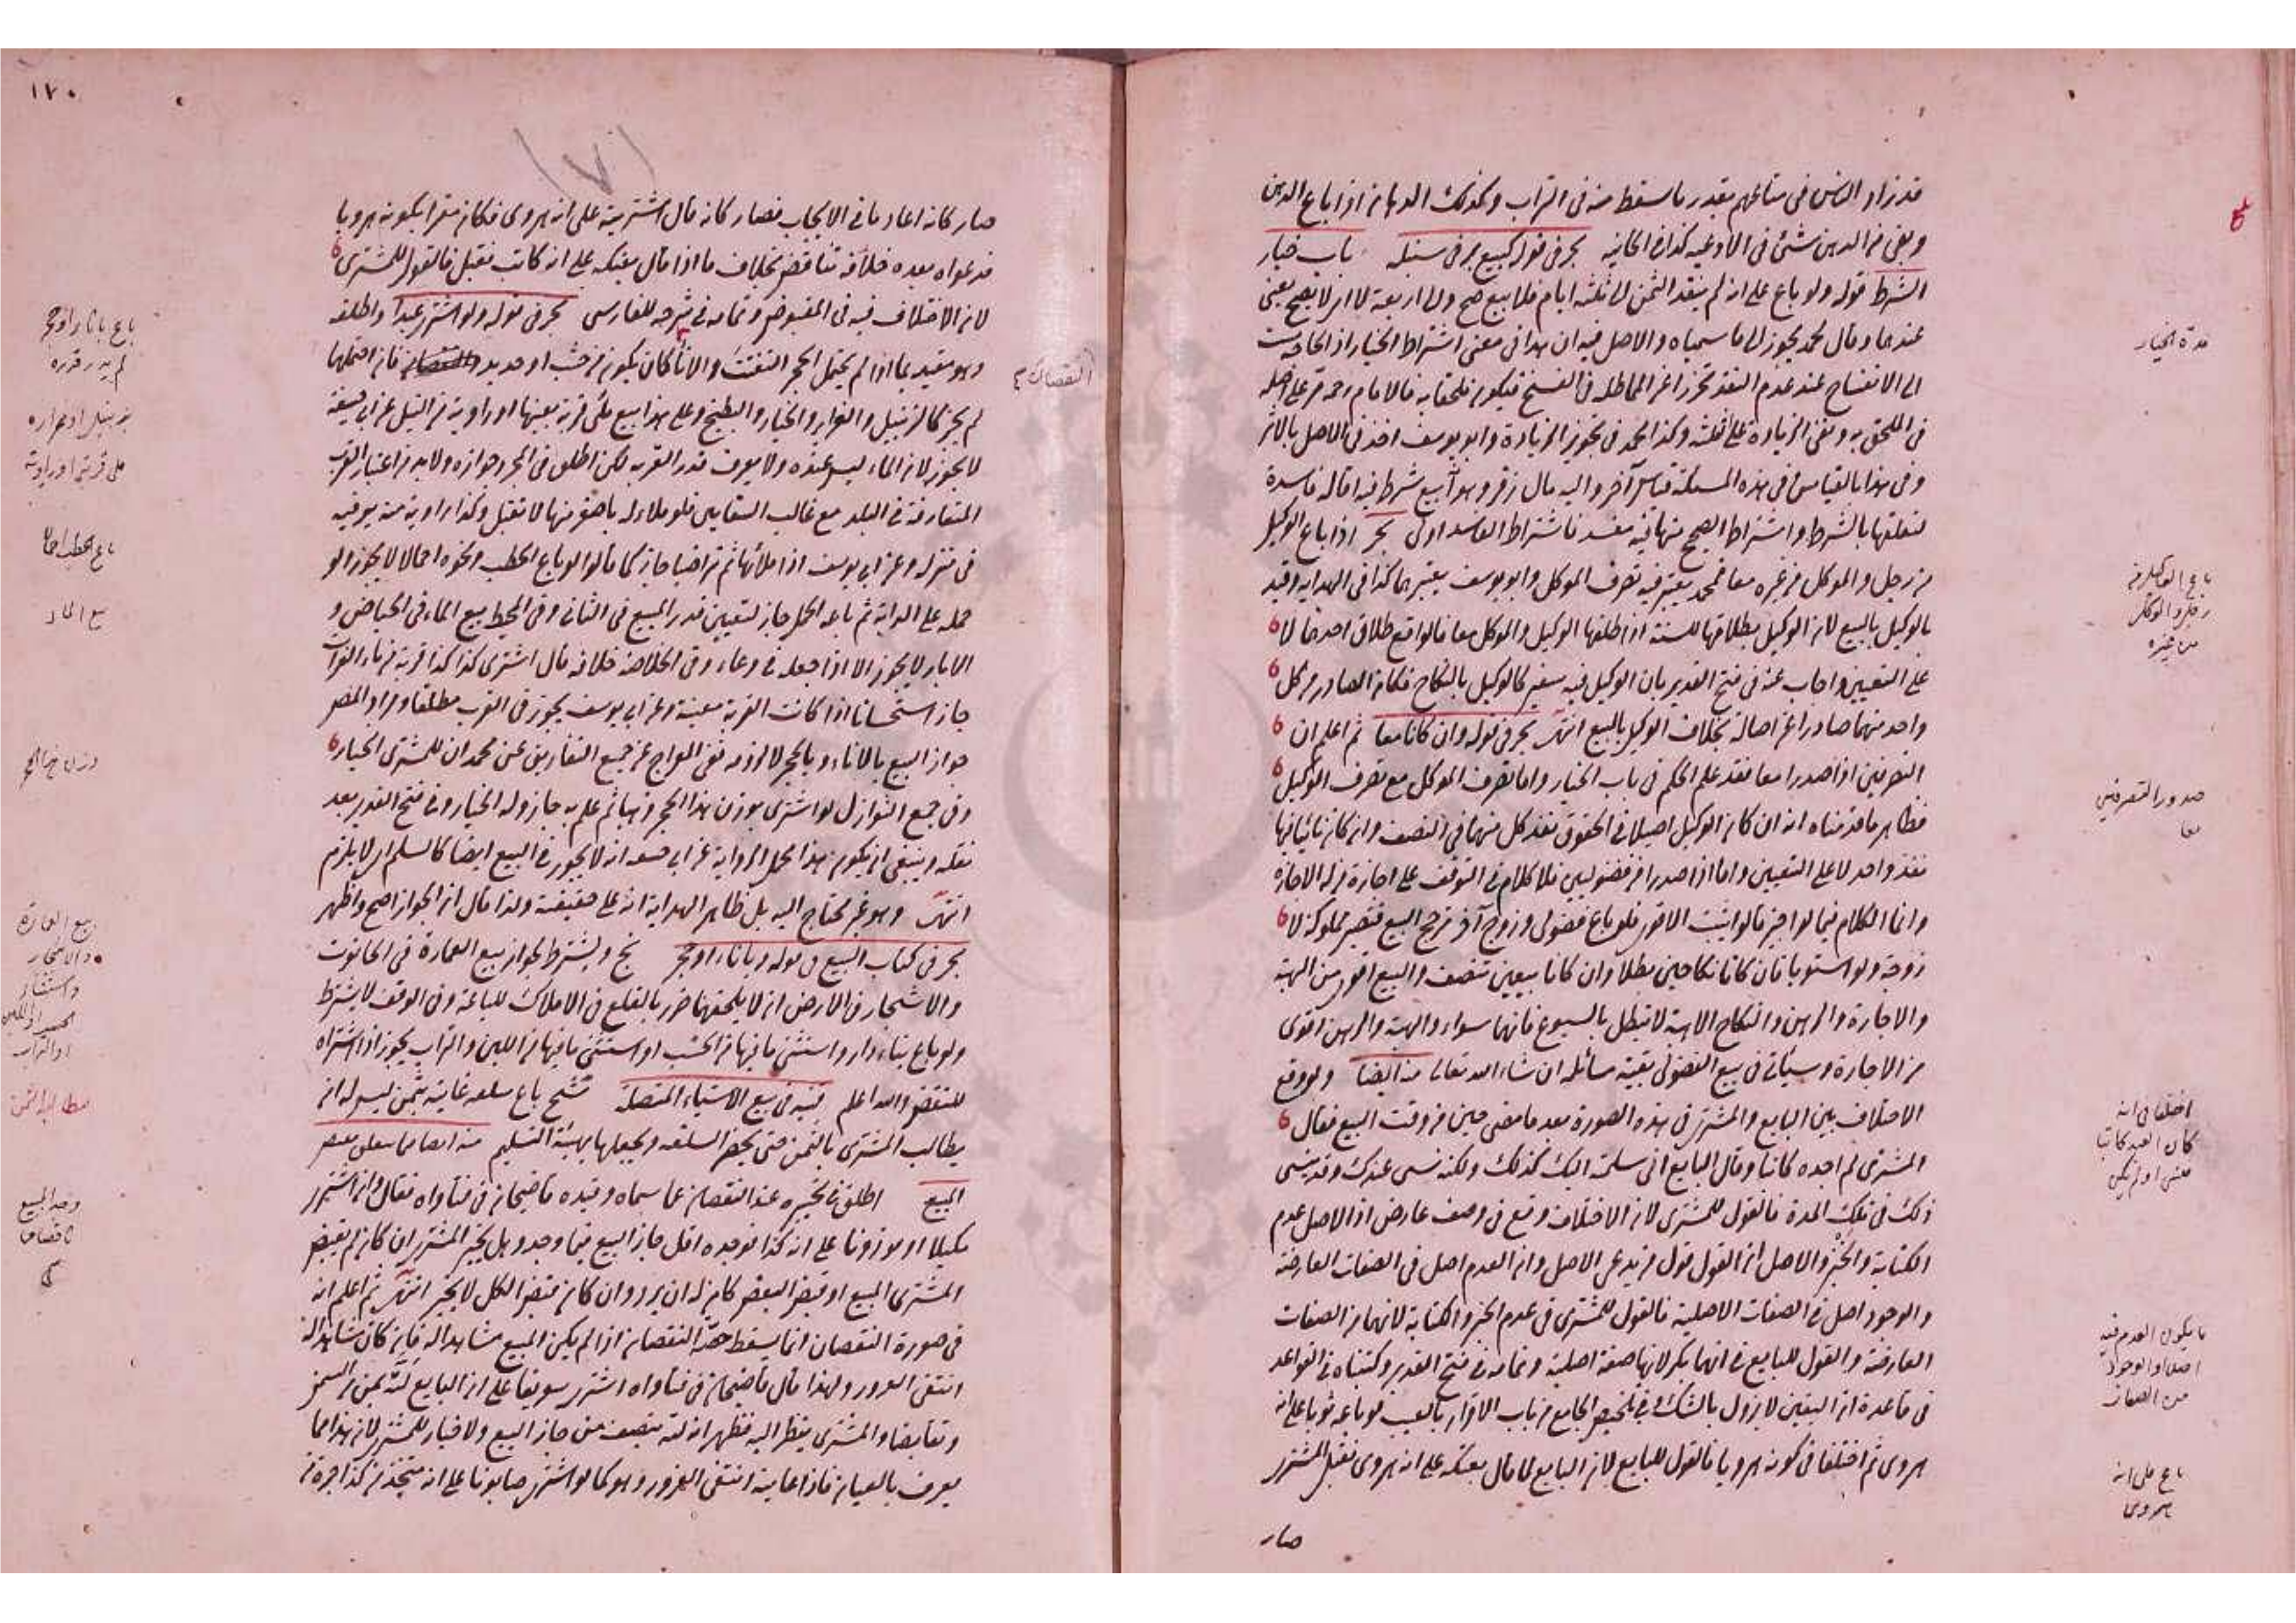 قد زاد الناس في متاعهم بقدر ما سقط منه في التراب وكذلك الدهان اذا باع الدهن
وبقي من الدهن شئ في الاوعيه كذا في الخانيه بحر في قوله كبيع بر في سنبله باب خيار
الشرط قوله ولو باع على انه لم ينقد الثمن الى ثلثة ايام فلا بيع صح والى اربعة لا اى لا يصح يعني
عندهما وقال محمد يجوز الى ما سمياه والاصل فيه ان هذا في معنى اشتراط الخيار اذ الحاجة مست
الى الانفساخ عند عدم النقد تحرزا عن المماطلة في الفسخ فيكون ملحقا به فالامام رحمه مر على اصله
في الملحق به ونفى الزيادة على الثلثة وكذا محمد في تجويز الزيادة وابو يوسف اخذ في الاصل بالاثر
وفي هذا بالقياس وفي هذه المسئلة قياس آخر واليه مال زفر وهو انه بيع شرط فيه اقالة فاسدة
لتعلقها بالشرط واشتراط الصحيح منها فيه مفسد فاشتراط الفاسد اولى بحر اذا باع الوكيل
من رجل والموكل من غيره معا فمحمد يعتبر فيه تصرف الموكل وابو يوسف يعتبرهما كذا في الهدايه وقيد
بالوكيل بالبيع لان الوكيل بطلاقها للسنة اذا طلقها الوكيل والموكل معا فالواقع طلاق احدهما لا
على التعيين واجاب عنه في فتح القدير بان الوكيل فيه سفير كالوكيل بالنكاح فكان الصادر من كل
واحد منهما صادرا عن اصالة بخلاف الوكيل بالبيع انتهى بحر في قوله وان كانا معا ثم اعلم ان
التصرفين اذا صدرا معا فقد علم الحكم في باب الخيار واما تصرف الموكل مع تصرف الوكيل
فظاهر ما قدمناه انه ان كان الوكيل اصيلا في الحقوق نفذ كل منهما في النصف وان كان نائبا فيها
نفذ واحد لا على التعيين واما اذا صدرا من فضوليين فلا كلام في التوقف على اجازة من له الاجازة
وانما الكلام فيما لو اجيز قالوا يثبت الاقوى فلو باع فضولى وزوج آخر ترجح البيع فتصير مملوكة لا
زوجة ولو استويا بان كانا نكاحين بطلا وان كانا بيعين تنصف والبيع اقوى من الهبة
والاجارة والرهن والنكاح الا هبة لا تبطل بالشيوع فانهما سواء والهبة والرهن اقوى
من الاجارة وسيأتي في بيع الفضولى بقية مسائله ان شاء الله تعالى منه ايضا ولو وقع
الاختلاف بين البايع والمشترى في هذه الصورة بعد ما مضى حين من وقت البيع فقال
المشترى لم اجده كاتبا وقال البايع انى سلمته اليك كذلك ولكنه نسى عندك وقد ينسى
ذلك في تلك المدة فالقول للمشترى لان الاختلاف وقع في وصف عارض اذ الاصل عدم
الكتابة والخبز والاصل ان القول قول من يدعى الاصل وان العدم اصل في الصفات العارضة
والوجود اصل في الصفات الاصلية فالقول للمشترى في عدم الخبز والكتابة لانهما من الصفات
العارضة والقول للبايع في انها بكر لانها صفة اصلية وتمامه في فتح القدير وكتبناه في القواعد
في قاعدة ان اليقين لا يزول بالشك وفي تلخيص الجامع من باب الاقرار بالعيب لو باعه ثوبا على انه
هروى ثم اختلفا في كونه هرويا فالقول للبايع لان البايع لما قال بعتكه على انه هروى فقبل المشترى
صار
مدة الخيار
باع الوكيل من
رجل والموكل
من غيره
صدور التصرفين
معا
اختلفا في انه
كان العبد كاتبا
ما يكون العدم فيه
اصلا او الوجود
من الصفات
باع على انه
هروى
١٧٠
(٧)
صار كانه اعاد ما في الايجاب فصار كانه قال اشتريته على انه هروى فكان مقرا بكونه هرويا
فدعواه بعده خلافه تناقض بخلاف ما اذا قال بعتكه على انه كاتب فقبل فالقول للمشترى
لان الاختلاف فيه في المقبوض وتمامه في شرحه للفارسى بحر في قوله ولو اشترى عبدا واطلقه
وهو مقيد بما اذا لم يحتمل الحجر التفتت والاناء كان يكون من خشب او حديد فان احتملها
النقصان
لم يجز كالزنبيل والغراير والخيار والبطيخ وعلى هذا بيع ملئ قربة بعينها او راوية من النيل عن ابى حنيفة
لا يجوز لان الماء ليس عنده ولا يعرف قدر القربه لكن اطلق في المجرد جوازه ولابد من اعتبار القرب
المتعارفة في البلد مع غالب السقايين فلو ملأ له باصغر منها لا تقبل وكذا راوية منه يوفيه
في منزله وعن ابى يوسف اذا ملأها ثم تراضيا جاز كما قالوا لو باع الحطب ونحوه احمالا لا يجوز ولو
حمله على الدابة ثم باعه الحمل جاز لتعيين قدر المبيع في الثانى وفي المحيط بيع الماء في الحياض و
الابار لا يجوز الا اذا جعله في وعاء وفي الخلاصه خلافه قال اشترى كذا كذا قربة من ماء الفرات
جاز استحسانا اذا كانت القربة معينة وعن ابى يوسف يجوز في القرب مطلقا ومراد المصر
جواز البيع بالاناء وبالحجر لا لزومه ففى السراج عن جميع التفاريق عن محمد ان للمشترى الخيار
وفي جمع النوازل لو اشترى بوزن هذا الحجر ذهبا ثم علم به جاز وله الخيار وفي فتح القدير بعد
نقله وينبغى ان يكون هذا محمل الرواية عن ابى حنيفه انه لا يجوز في البيع ايضا كالسلم اى لا يلزم
انتهى وهو غير محتاج اليه بل ظاهر الهداية انه على حقيقته ولذا قال ان الجواز اصح واظهر
بحر في كتاب البيع في قوله وباناء او حجر نج ويشترط لجواز بيع العمارة في الحانوت
والاشجار في الارض ان لا يلحقهما ضرر بالقلع في الاملاك للباعة وفي الوقف لا يشترط
ولو باع بناء دار واستثنى ما فيها من الخشب او استثنى ما فيها من اللبن والتراب يجوز اذا اشتراه
للنقض والله اعلم قنيه في بيع الاشياء المتصله شح باع سلعة غايبة بثمن ليس له ان
يطالب المشترى بالثمن حتى يحضر السلعه ويجعلها بهيئة التسليم منه ايضا فيما يتعلق بقبض
المبيع اطلق في تخييره عند النقصان عما سماه وقيده قاضيخان في فتاواه فقال وان اشترى
مكيلا او موزونا على انه كذا فوجده اقل جاز البيع فيما وجد وهل يخير المشترى ان كان لم يقبض
المشترى المبيع او قبض البعض كان له ان يرد وان كان قبض الكل لا يخير انتهى ثم اعلم انه
في صورة النقصان انما يسقط حصة النقصان اذا لم يكن المبيع مشاهدا له فان كان مشاهدا له
انتفى الغرور ولهذا قال قاضيخان في فتاواه اشترى سويقا على ان البايع لته بمن من السمن
وتقابضا والمشترى ينظر اليه فظهر انه لته بنصف من جاز البيع ولا خيار للمشترى لان هذا مما
يعرف بالعيان فاذا عاينه انتفى الغرور وهو كما لو اشترى صابونا على انه متخذ من كذا جرة من
باع باناء او حجر
لم يدر قدره
ملى قربة او راوية
باع الحطب احمالا
بيع الماء
بيع العمارة
والاشجار
واستثناء
الخشب او اللبن
او التراب
وجد المبيع
ناقصا